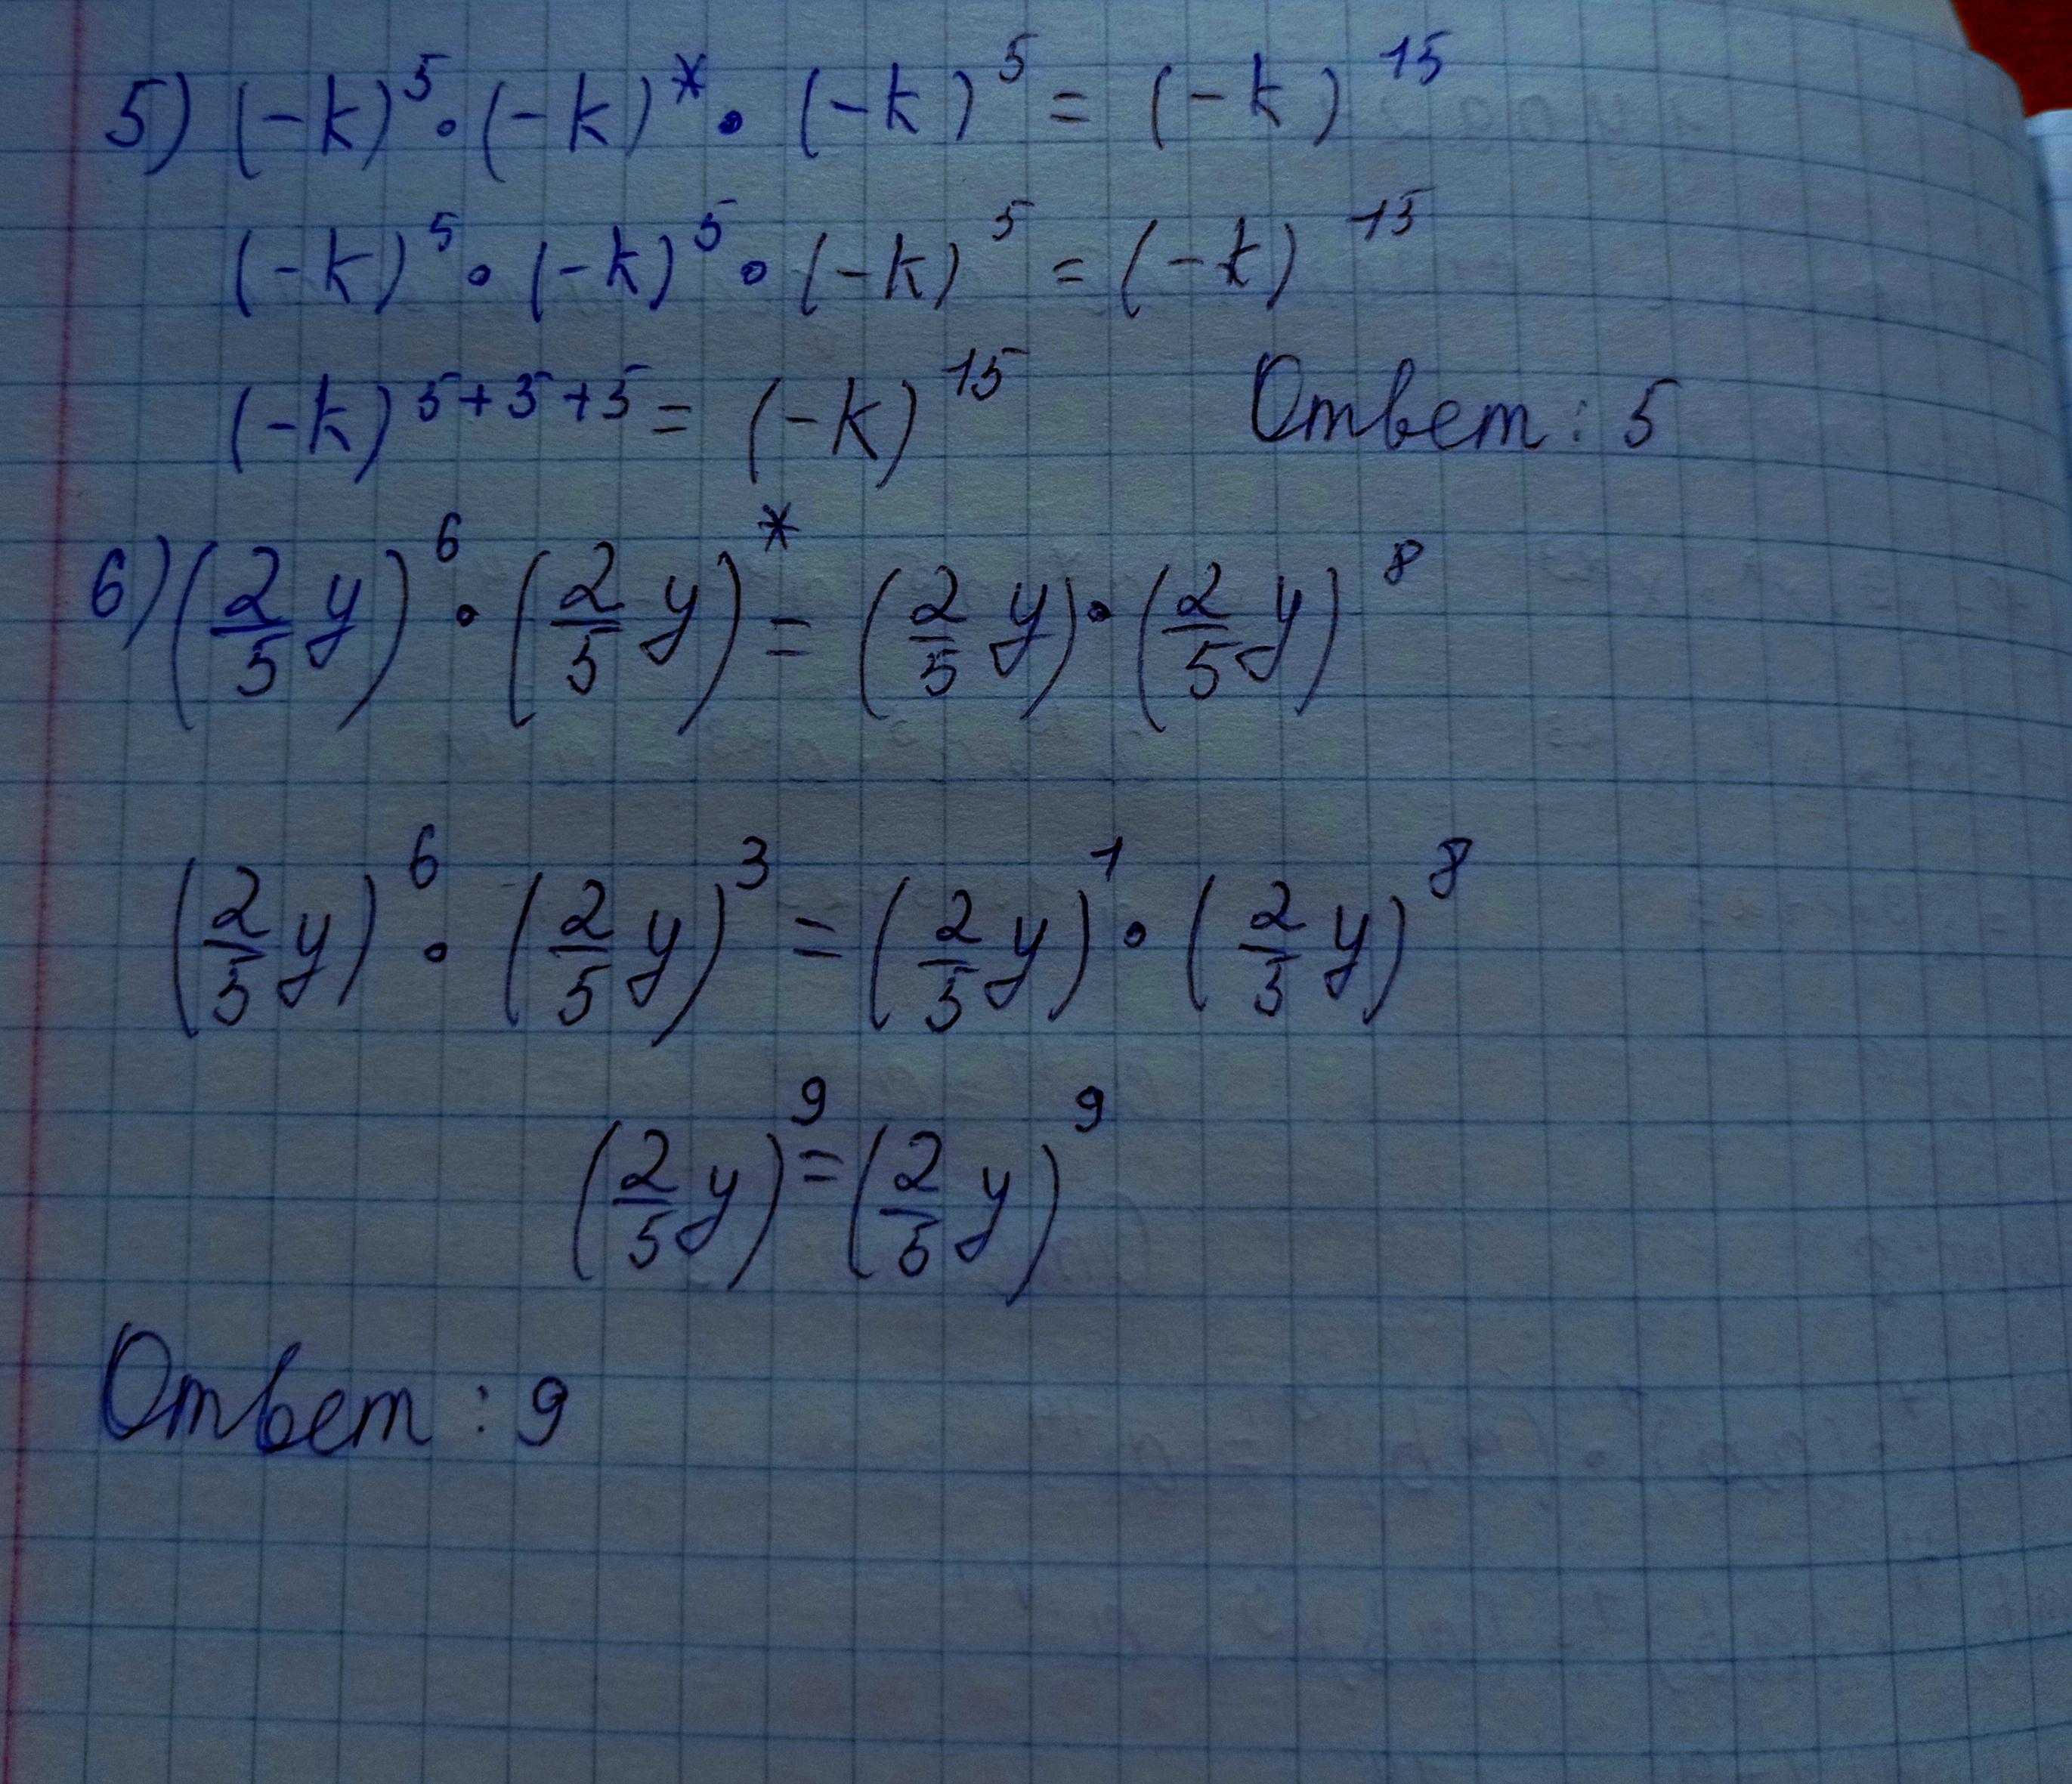 5) (-k)^5 · (-k)^* · (-k)^5 = (-k)^15
(-k)^5 · (-k)^5 · (-k)^5 = (-k)^15
(-k)^5+5+5 = (-k)^15 Ответ: 5
6) (2/5 y)^6 · (2/5 y)^* = (2/5 y) · (2/5 y)^8
(2/5 y)^6 · (2/5 y)^3 = (2/5 y)^1 · (2/5 y)^8
(2/5 y)^9 = (2/5 y)^9
Ответ: 9